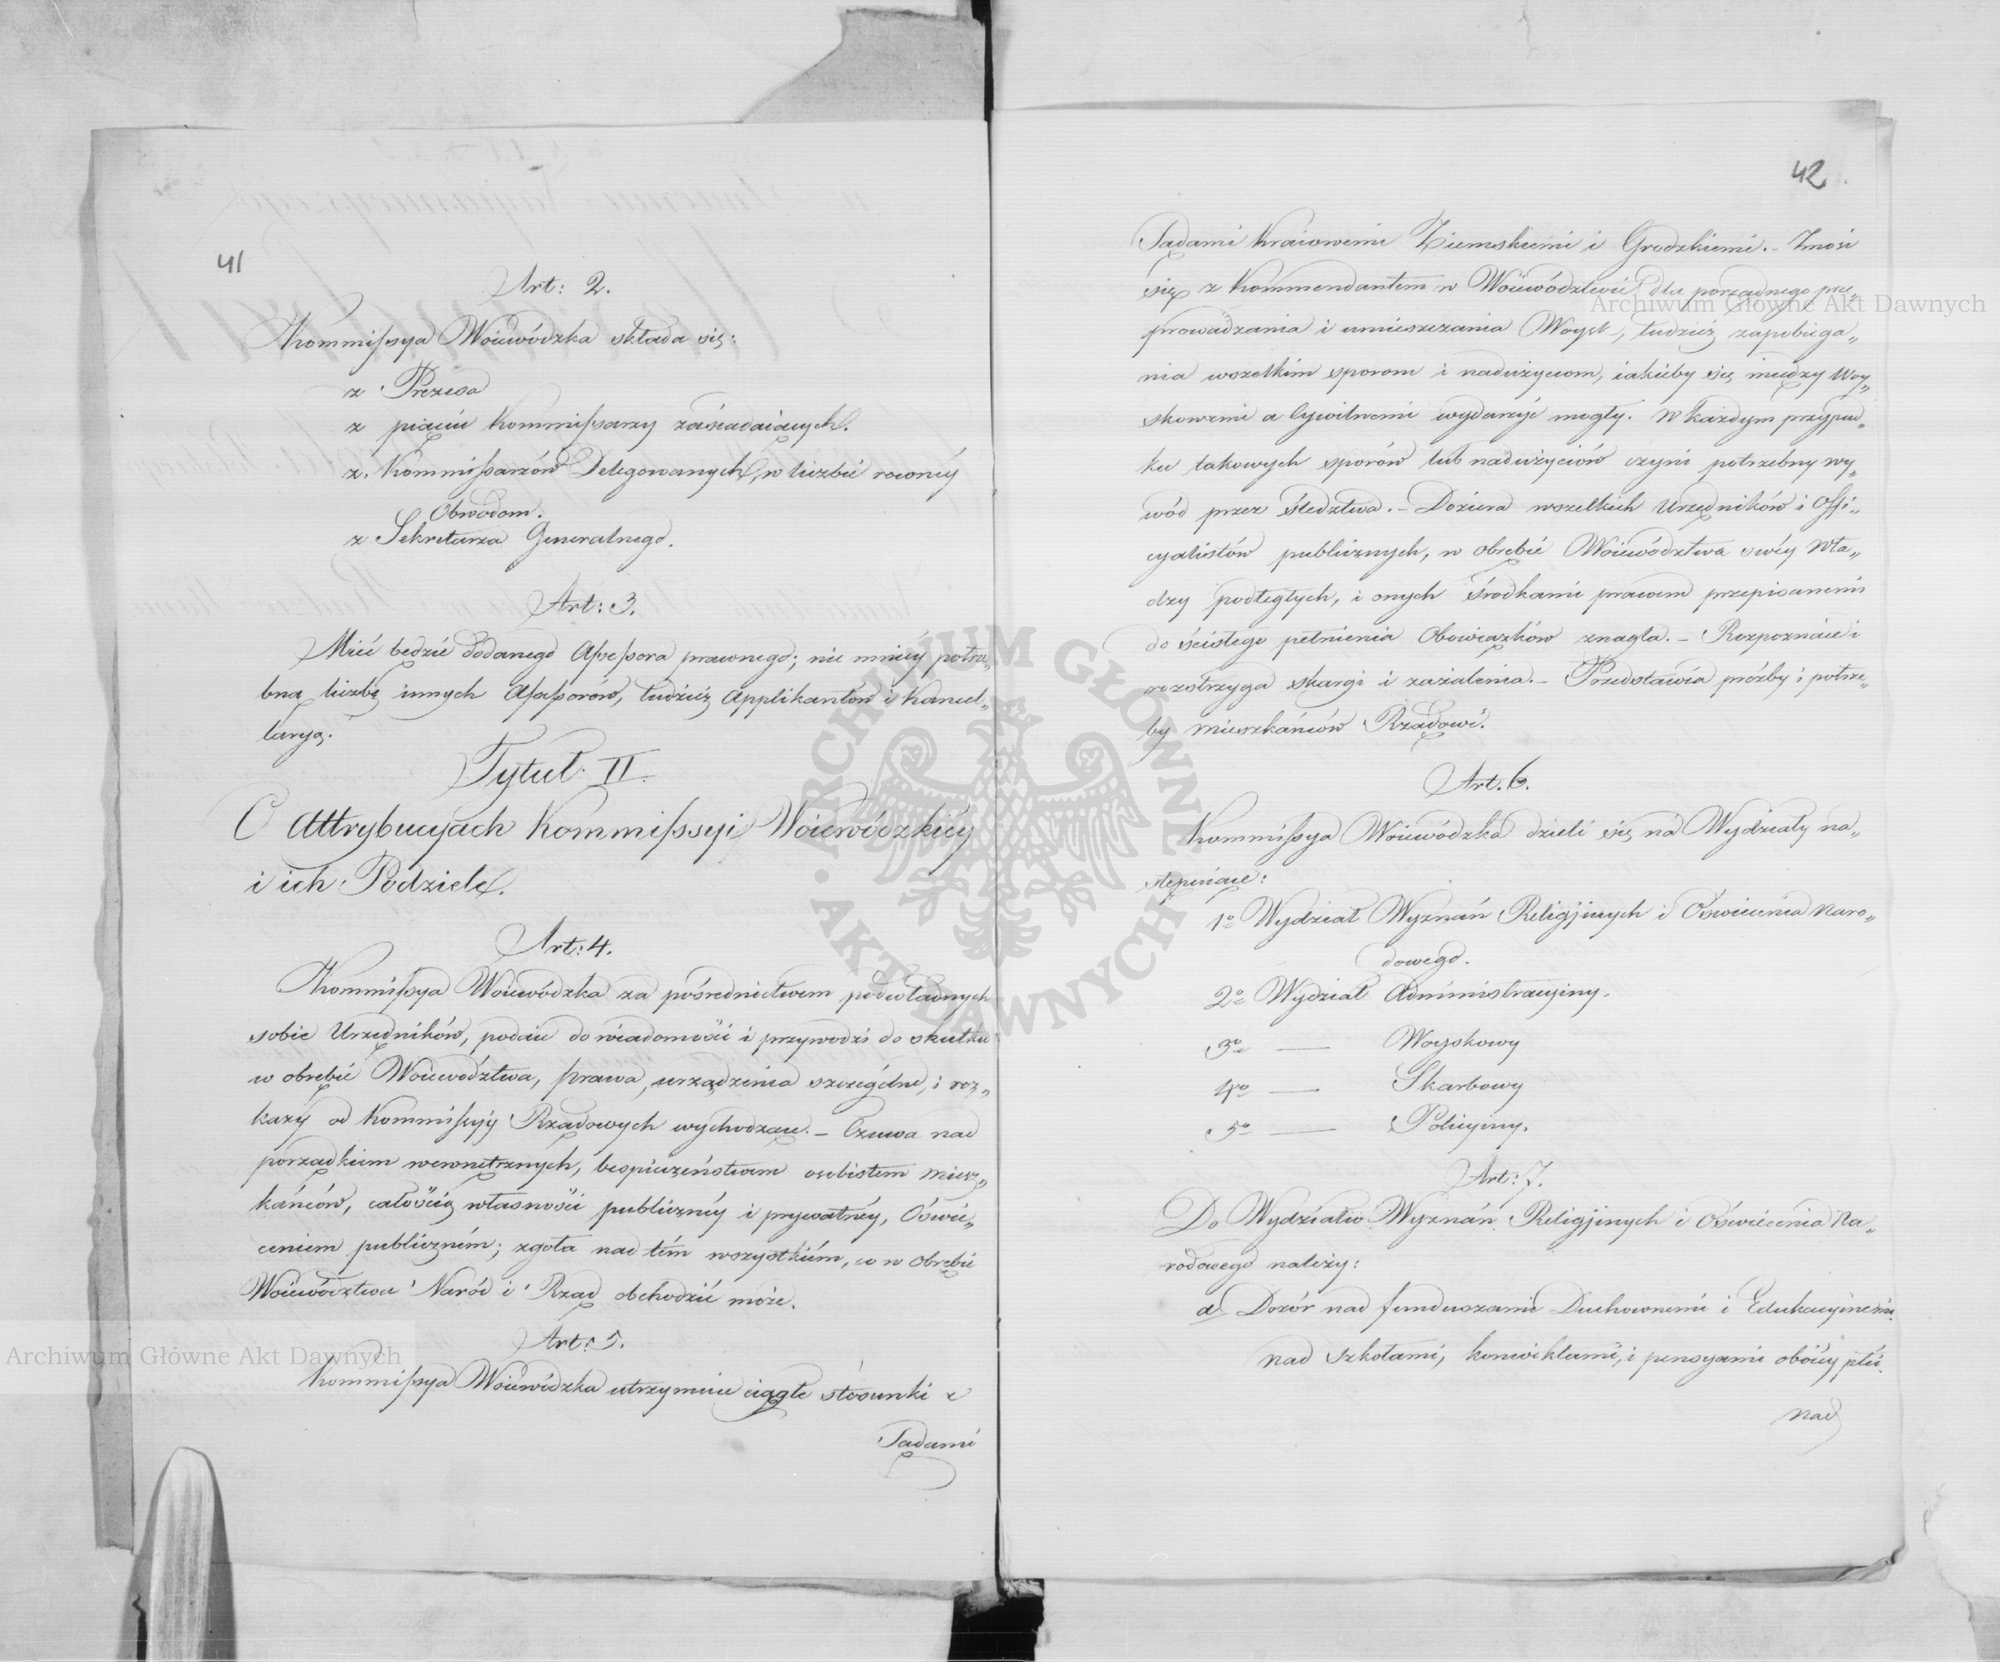 41
Art: 2.
Kommissya Woiewódzka składa się:
z Prezesa
z pięciu Kommissarzy zasiadaiących.
z Kommissarzów Delegowanych, w liczbie rownéy
Obwodom.
z Sekretarza Generalnego.
Art: 3.
Mieć będzie dodanego Assessora prawnego; nie mniéy potrze„
bną liczbę innych Assessorów, tudzież Applikantów i Kancel„
laryą.
Tytuł II.
O Attrybucyach Kommissyi Woiewódzkiéy
i ich Podziele.
Art: 4.
Kommissya Woiewódzka za pośrednictwem podwładnych
sobie Urzędników, podaie do wiadomości i przywodzi do skutku
w obrębie Woiewództwa, prawa, urządzenia szczególne, i roz„
kazy od Kommissyy Rządowych wychodzące. – Czuwa nad
porządkiem wewnętrznych, bespieczeństwem osobistem miesz„
kańców, całością własności publicznéy i prywatnéy, Oświe„
ceniem publiczném; zgoła nad tém wszystkiém, co w obrębie
Woiewództwa Naród i Rząd obchodzić może.
Art: 5.
Kommissya Woiewódzka utrzymuie ciągłe stosunki z
Sądami
42
Sądami Kraiowemi Ziemskiemi i Grodzkiemi. – Znosi
się z Kommendantem w Woiewództwie dla porządnego prze„
prowadzania i umieszczania Woysk, tudzież zapobiega„
nia wszelkim sporom i nadużyciom, iakieby się między Woy„
skowemi a Cywilnemi wydarzyć mogły. W każdym przypad„
ku takowych sporów lub nadużyciów czyni potrzebny wy„
wód przez śledztwa. – Doziera wszelkich Urzędników i Offi„
cyalistów publicznych, w obrębie Woiewództwa swéy Wła„
dzy podległych, i onych środkami prawem przepisanemi
do ścisłego pełnienia Obowiązków znagla. – Rozpoznaie i
rozstrzyga skargi i zażalenia. – Przedstawia prośby i potrze„
by mieszkańców Rządowi.
Art. 6.
Kommissya Woiewódzka dzieli się na Wydziały na„
stępuiące:
1o Wydział Wyznań Religijnych i Oświecenia Naro„
dowego.
2o Wydział Administracyiny.
3o — Woyskowy
4o — Skarbowy
5o — Policyiny.
Art: 7.
Do Wydziału Wyznań Religijnych i Oświecenia Na„
rodowego należy:
a Dozór nad funduszami Duchownemi i Edukacyinemi
nad szkołami, konwiktami, i pensyami obóiéy płci.
nad
Archiwum Główne Akt Dawnych
Archiwum Główne Akt Dawnych
ARCHIWUM GŁÓWNE AKT DAWNYCH